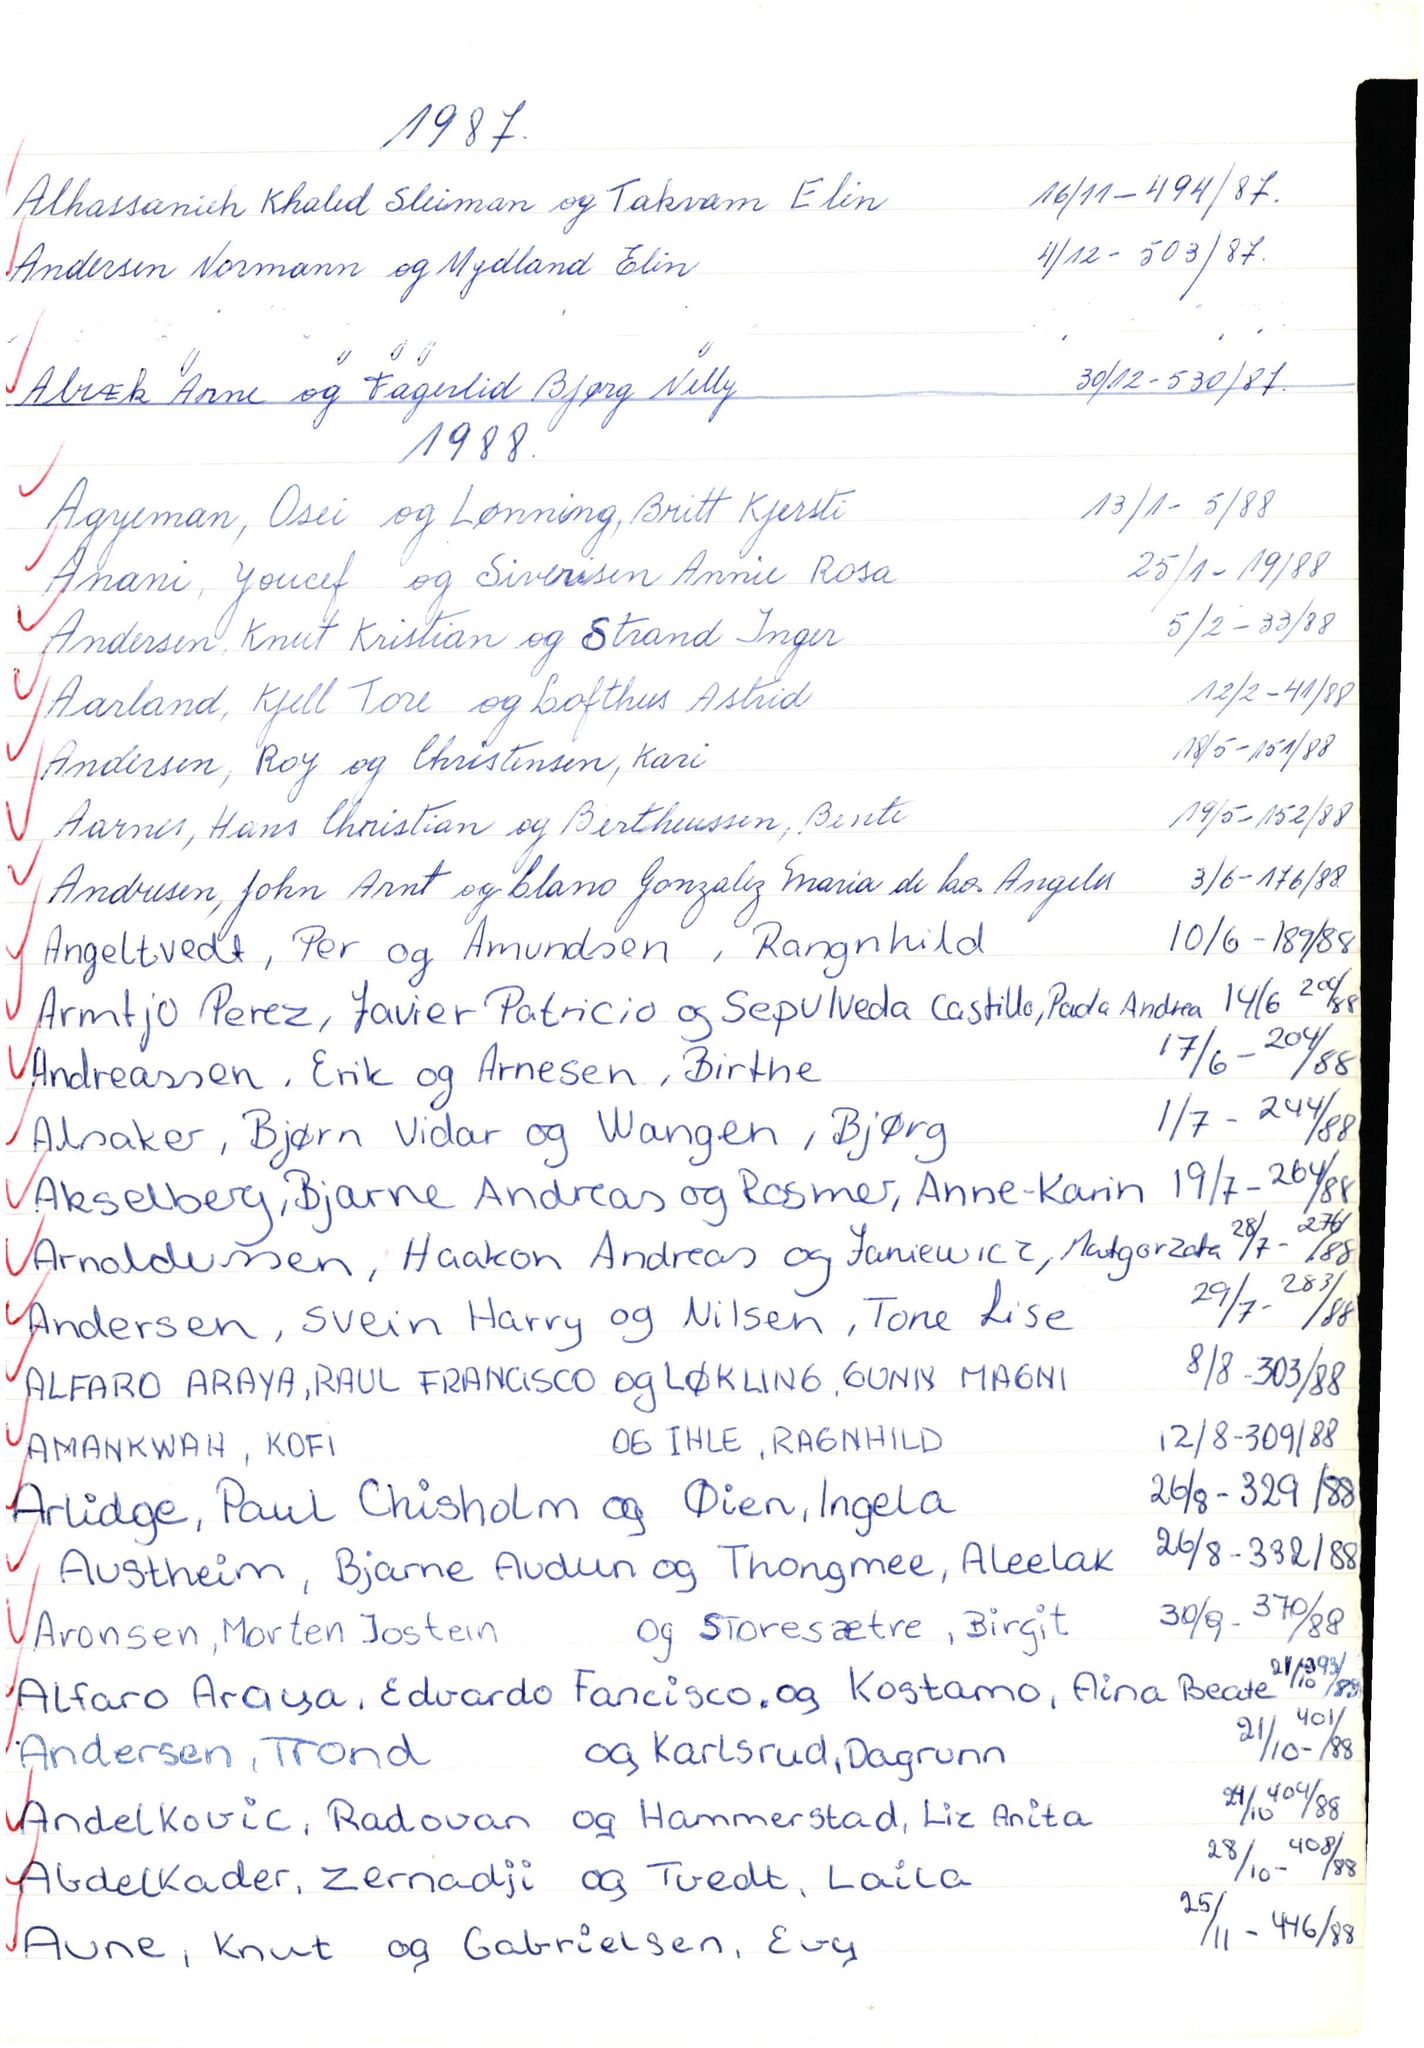 1987.
Alhassanieh Khaled Sleiman og Takvam Elin 16/11 - 494/87.
Andersen Normann og Mydland Elin 4/12 - 503/87.
Abræk Arne og Fagerlid Bjørg Nelly 30/12 - 530/87.
1988.
Agyeman, Osei og Lønning, Britt Kjersti 13/1 - 5/88
Anani, Youcef og Sivertsen Annie Rosa 25/1 - 19/88
Andersen, Knut Kristian og Strand Inger 5/2 - 33/88
Aarland, Kjell Tore og Lofthus Astrid 12/2 - 41/88
Andersen, Roy og Christensen, Kari 18/5 - 151/88
Aarnes, Hans Christian og Bertheussen, Bente 19/5 - 152/88
Andresen, John Arnt og Llano Gonzalez Maria de los Angeles 3/6 - 176/88
Angeltvedt, Per og Amundsen, Rangnhild 10/6 - 189/88
Armtjo Perez, Javier Patricio og Sepulveda Castillo, Paola Andrea 14/6 200/88
Andreassen, Erik og Arnesen, Birthe 17/6 - 204/88
Alsaker, Bjørn Vidar og Wangen, Bjørg 1/7 - 244/88
Akselberg, Bjarne Andreas og Rosmer, Anne-Karin 19/7 - 264/88
Arnoldussen, Haakon Andreas og Janiewicz, Malgorzata 28/7 - 276/88
Andersen, Svein Harry og Nilsen, Tone Lise 29/7 - 283/88
ALFARO ARAYA, RAUL FRANCISCO og LØKLING, GUNN MAGNI 8/8 - 303/88
AMANKWAH, KOFI OG IHLE, RAGNHILD 12/8 - 309/88
Arlidge, Paul Chisholm og Øien, Ingela 26/8 - 329/88
Austheim, Bjarne Audun og Thongmee, Aleelak 26/8 - 332/88
Aronsen, Morten Jostein og Storesætre, Birgit 30/9 - 370/88
Alfaro Araya, Edvardo Fancisco. og Kostamo, Aina Beate 21/10 393/88
Andersen, Trond og Karlsrud, Dagrunn 21/10 - 401/88
Andelkovic, Radovan og Hammerstad, Liz Anita 24/10 404/88
Abdelkader, Zernadji og Tvedt, Laila 28/10 - 408/88
Aune, Knut og Gabrielsen, Evy 25/11 - 446/88